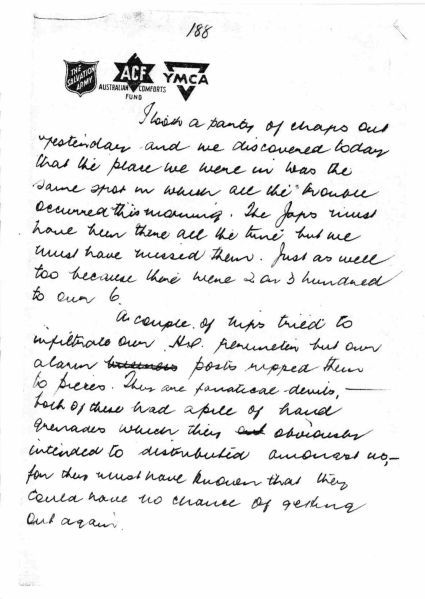 188
THE SALVATION ARMY
ACF
AUSTRALIAN COMFORTS FUND
YMCA
I took a party of chaps out
yesterday and we discovered today
that the place we were in was the
same spot in which all the trouble
occurred this morning. The Japs must
have been there all the time but we
must have missed them. Just as well
too because there were 2 or 3 hundred
to our 6.
A couple of nips tried to
infiltrate our H.Q. perimeter but our
alarm posts ripped them
to pieces. They are fanatical devils, —
both of these had a pile of hand
grenades which they obviously
intended to distributed amongst us, —
for they must have known that they
could have no chance of getting
out again.